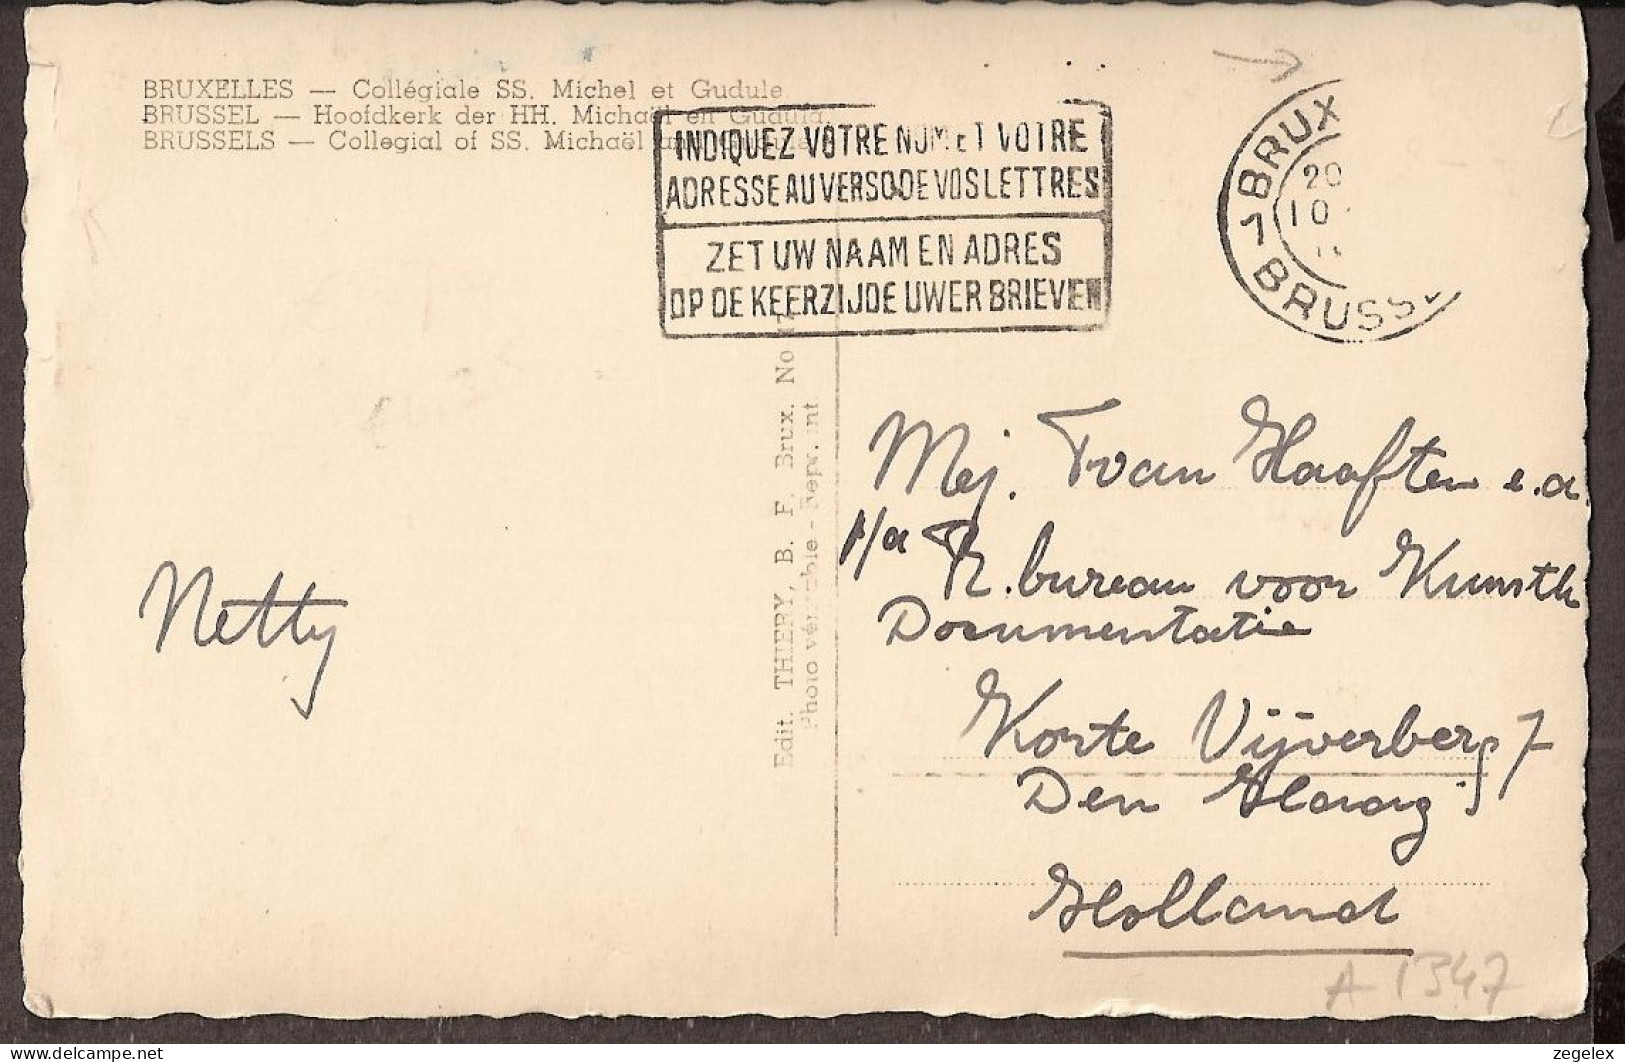 BRUXELLES — Collégiale SS. Michel et Gudule.
BRUSSEL — Hoofdkerk der HH. Michaël en Gudula.
BRUSSELS — Collegial of SS. Michaël and
INDIQUEZ VOTRE NOM ET VOTRE
ADRESSE AU VERSO DE VOS LETTRES
ZET UW NAAM EN ADRES
OP DE KEERZIJDE UWER BRIEVEN
BRUX
20
10
1
BRUSSEL
Edit. THIERY, B. F. Brux. No
Photo véritable - Repr. int
Netty
Mej. T van Haaften e.a.
p/a R. bureau voor Kunsth
Documentatie
Korte Vijverberg 7
Den Haag
Holland
A 1347
zegelex
delcampe.net